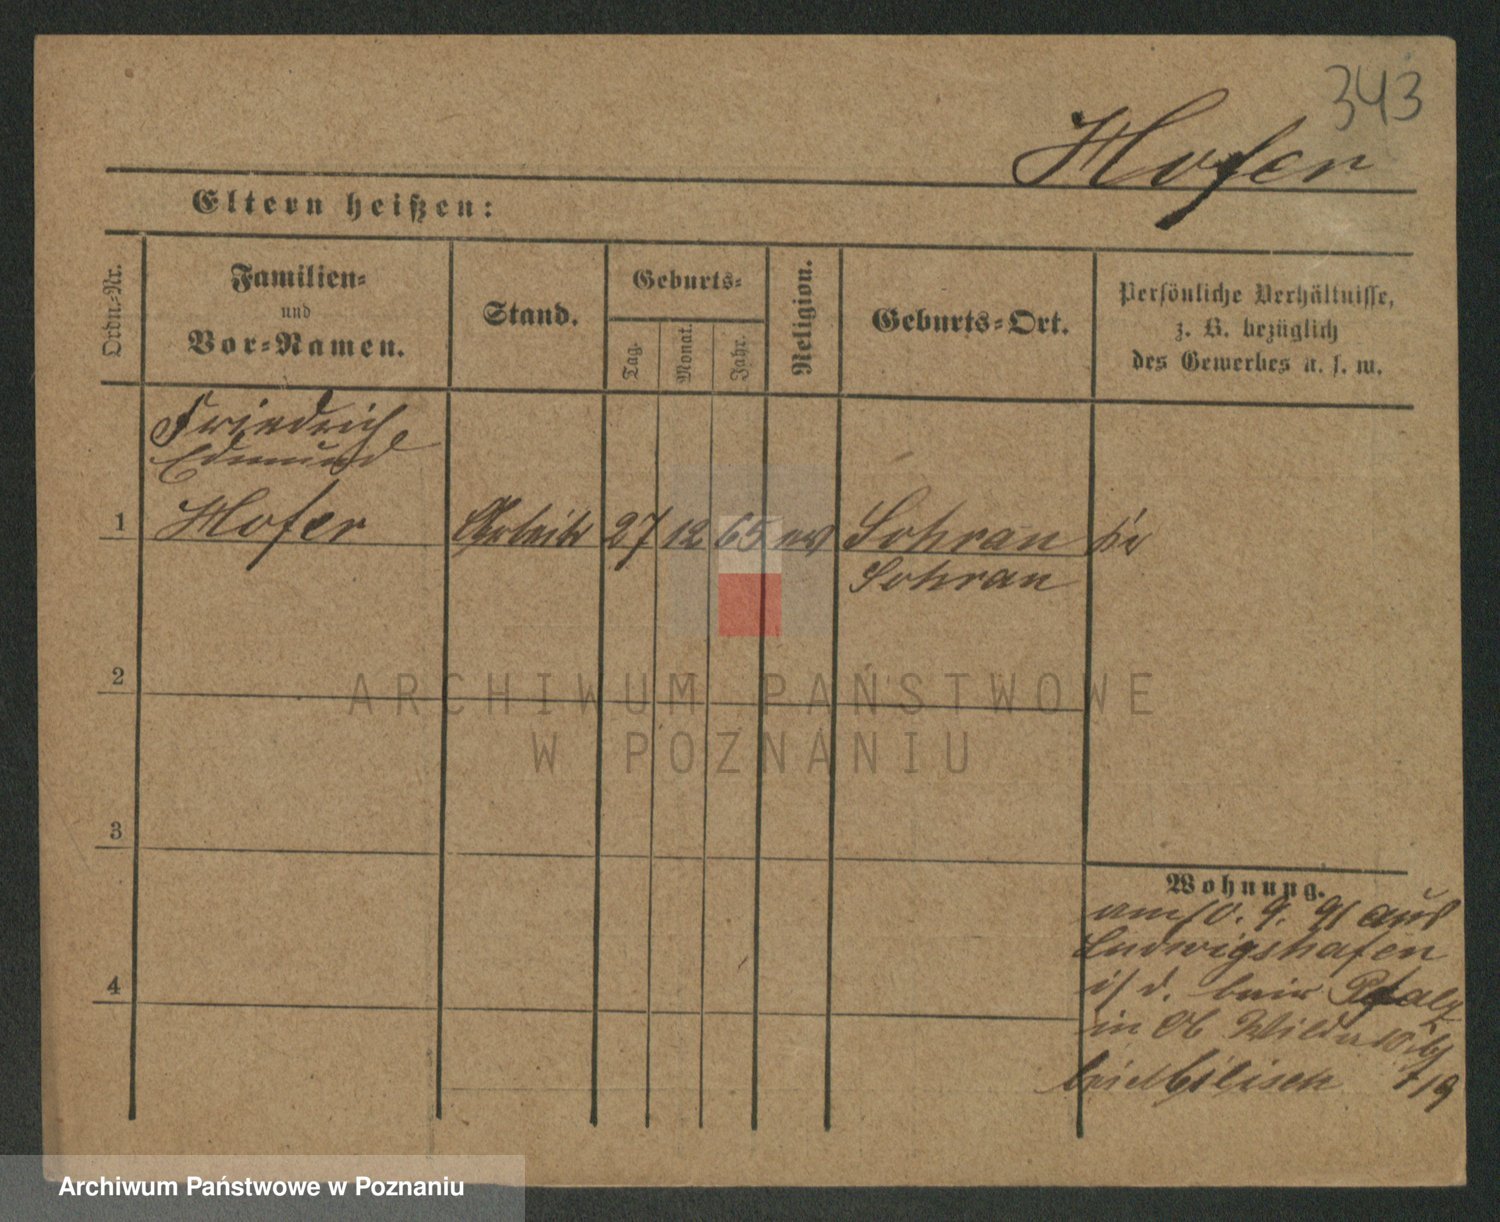 343
Hofer
Eltern heißen:
Ordn.-Nr.
Familien-
und
Vor-Namen.
Stand.
Geburts-
Tag.
Monat.
Jahr.
Religion.
Geburts-Ort.
Persönliche Verhältnisse,
z. B. bezüglich
des Gewerbes u. s. w.
Friedrich
Edmund
1 Hofer Arbeiter 27 12 65 ev Sohran
Sohran
2
3
4
Wohnung.
am 10. 9. 91 aus
Ludwigshafen
i/ d. bair Pfalz
in Ob Wilda
bei
ARCHIWUM PAŃSTWOWE
W POZNANIU
Archiwum Państwowe w Poznaniu